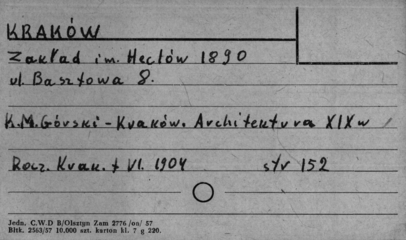 KRAKÓW
Zakład im. Helclów 1890
ul. Basztowa 8.
K.M. Górski - Kraków. Architektura XIX w
Rocz. Krak. t VI. 1904 str 152
Jedn. C.W.D B/Olsztyn Zam 2776/oa/ 57
Bltk. 2563/57 10.000 szt. karton kl. 7 g 220.